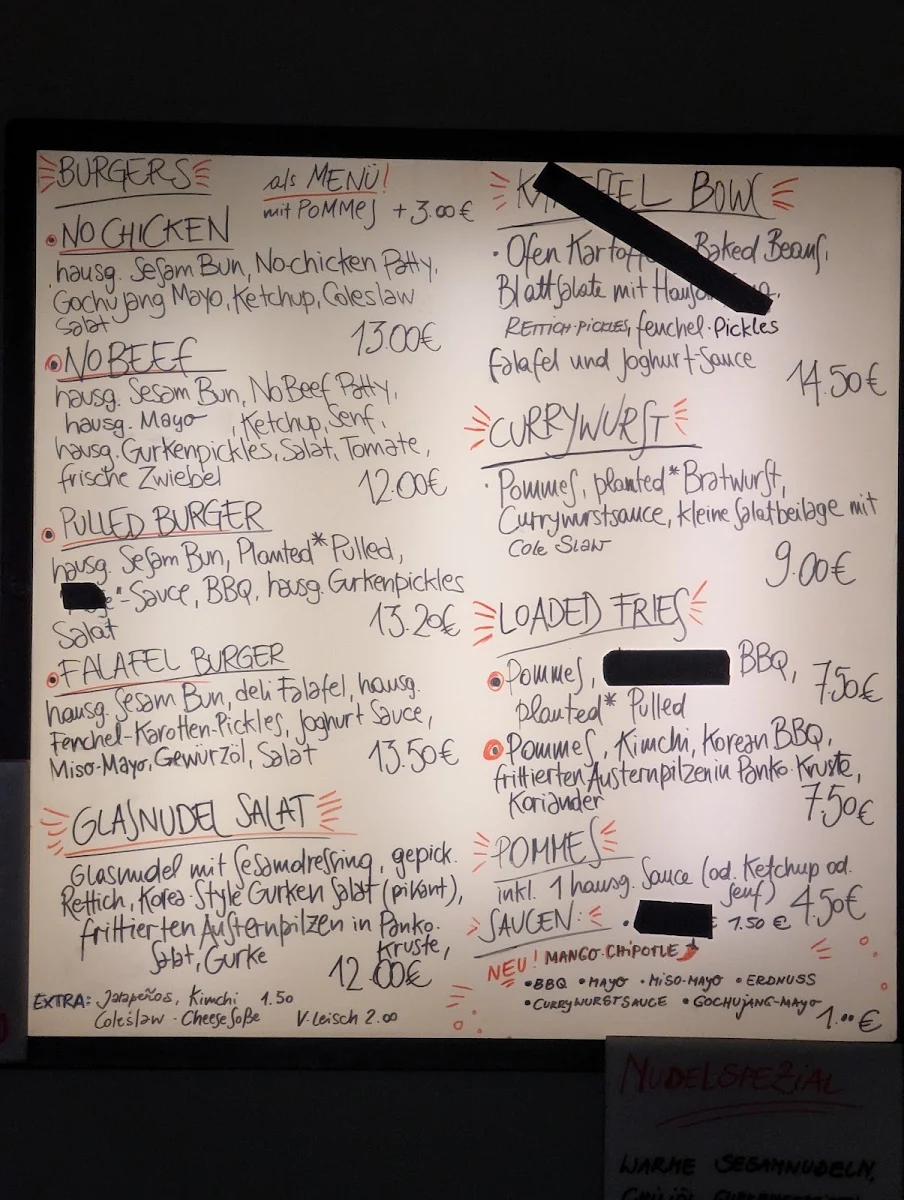 BURGERS
als MENÜ!
mit POMMES + 3.00 €
• NO CHICKEN
hausg. Sesam Bun, No-chicken Patty,
Gochujang Mayo, Ketchup, Coleslaw
Salat
13.00€
• NO BEEF
hausg. Sesam Bun, No Beef Patty,
hausg. Mayo , Ketchup, Senf,
hausg. Gurkenpickles, Salat, Tomate,
frische Zwiebel
12.00€
• PULLED BURGER
hausg. Sesam Bun, Planted* Pulled,
-Sauce, BBQ, hausg. Gurkenpickles
Salat
13.20€
• FALAFEL BURGER
hausg. Sesam Bun, deli Falafel, hausg.
Fenchel-Karotten-Pickles, Joghurt Sauce,
Miso-Mayo, Gewürzöl, Salat
13.50€
GLASNUDEL SALAT
Glasnudel mit Sesamdressing, gepick.
Rettich, Korea-Style Gurken Salat (pikant),
frittierten Austernpilzen in Panko-
Kruste,
Salat, Gurke
12.00€
EXTRA: Jalapeños, Kimchi 1.50
Coleslaw - Cheese Soße V-leisch 2.00
BOWL
• Ofen Baked Beans,
Blattsalate mit
RETTICH-PICKLES, fenchel-Pickles
Falafel und Joghurt-Sauce
14.50€
CURRYWURST
• Pommes, planted* Bratwurst,
Currywurstsauce, kleine Salatbeilage mit
Cole Slaw
9.00€
LOADED FRIES
• Pommes, BBQ,
planted* Pulled
7.50€
• Pommes, Kimchi, Korean BBQ,
frittierten Austernpilzen in Panko-Kruste,
Koriander
7.50€
POMMES
inkl. 1 hausg. Sauce (od. Ketchup od.
Senf)
4.50€
SAUCEN: • 1.50 €
NEU! MANGO-CHIPOTLE
• BBQ • MAYO • MISO-MAYO • ERDNUSS
• CURRYWURSTSAUCE • GOCHUJANG-MAYO
1.00 €
NUDELSPEZIAL
WARME SESAMNUDELN,